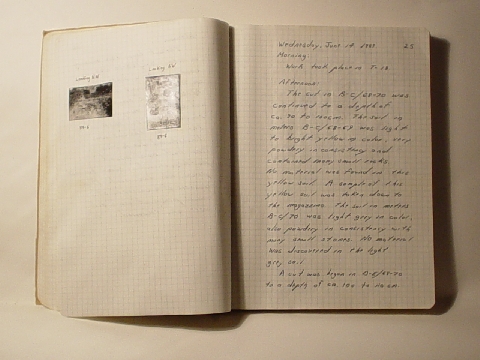 Looking SW
Looking SW
Wednesday, June 19, 1985
25
Morning
Work took place in
Afternoon
The soil in B-C/68-70 was
continued to a depth of
ca. 90 to 100cm. The soil in
meters B-C/68-69 was light
to bright yellow in color, very
powdery in consistency and
contained many small rocks.
No material was found in this
yellow soil. A sample of this
yellow soil was taken down to
the magazine. The soil in meters
B-C/70 was light grey in color,
also powdery in consistency with
many small stones. No material
was discovered in the light
grey soil.
A cut was begun in
to a depth of ca. 100 to 110 cm